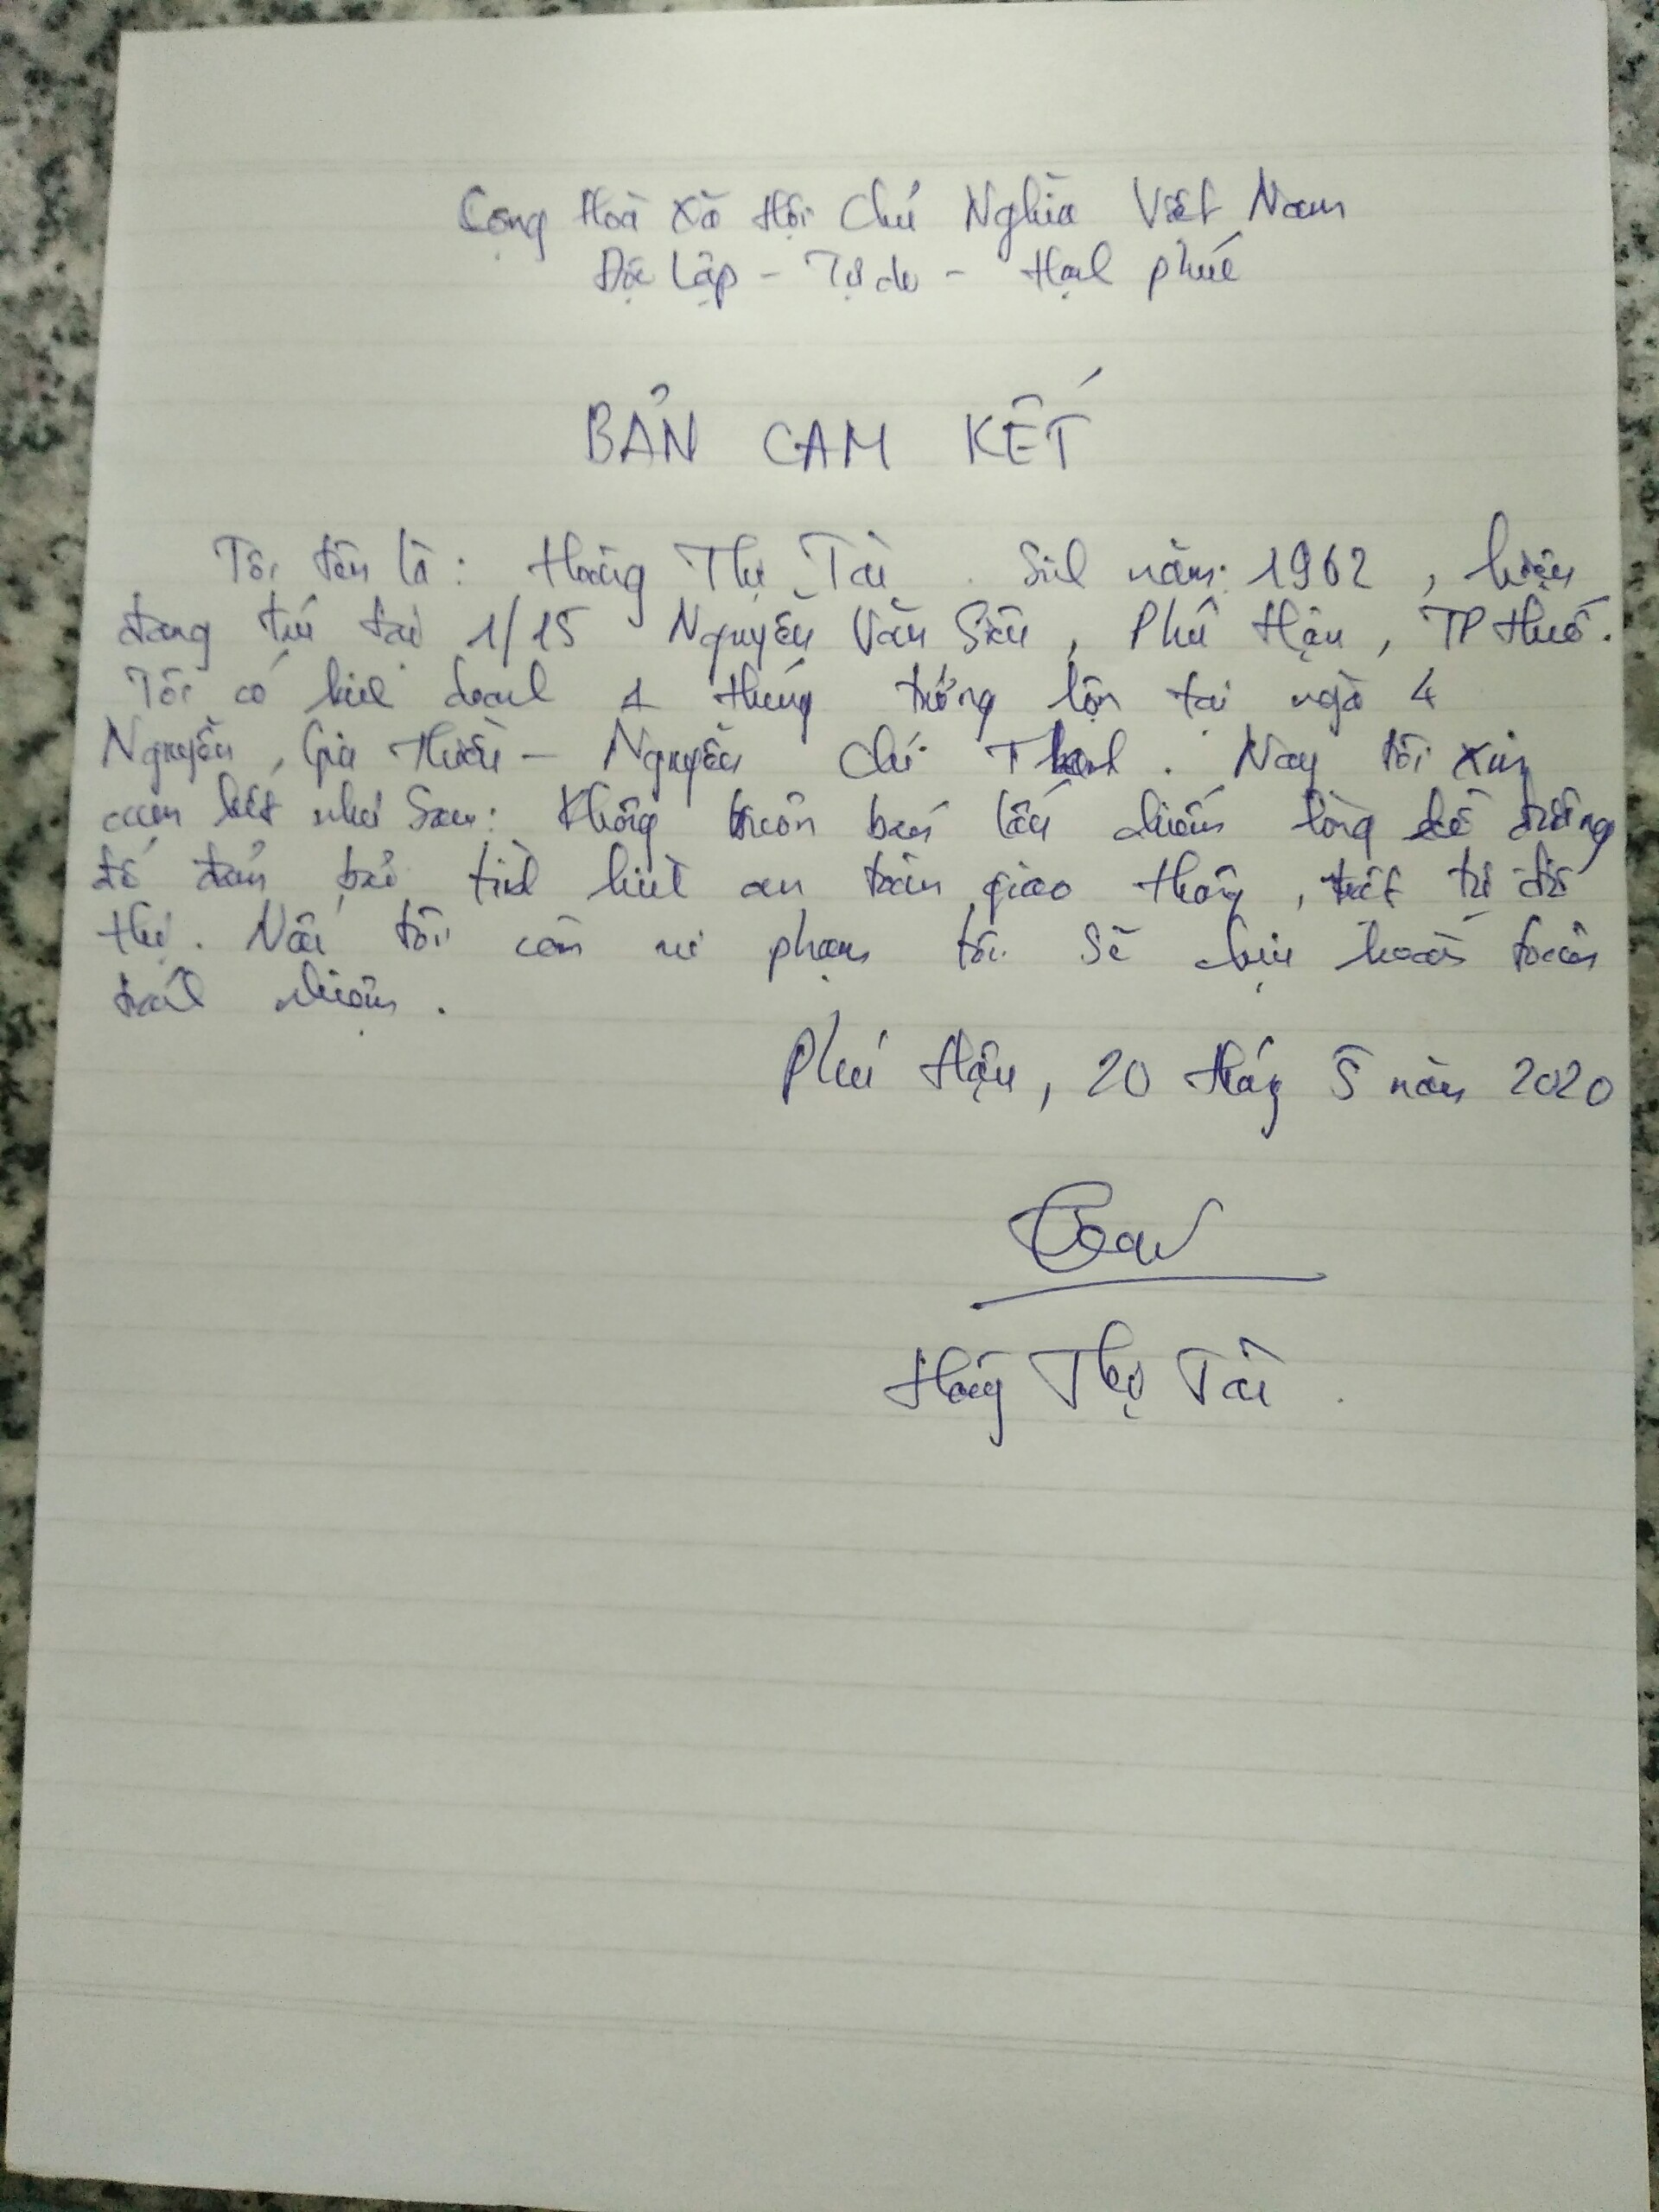 Cộng Hoà Xã Hội Chủ Nghĩa Việt Nam
Độc Lập - Tự do - Hạnh phúc
BẢN CAM KẾT
Tôi tên là: Hoàng Thị Tài. Sinh năm: 1962, hiện
đang trú tại 1/15 Nguyễn Văn Siêu, Phú Hậu, TP Huế.
Tôi có kinh doanh 1 thúng trứng lộn tại ngã 4
Nguyễn Gia Thiều - Nguyễn Chí Thanh. Nay tôi xin
cam kết như sau: Không buôn bán lấn chiếm lòng lề đường
để đảm bảo tình hình an toàn giao thông, trật tự đô
thị. Nếu tôi còn vi phạm tôi sẽ chịu hoàn toàn
trách nhiệm.
Phú Hậu, 20 tháng 5 năm 2020
Hoàng Thị Tài